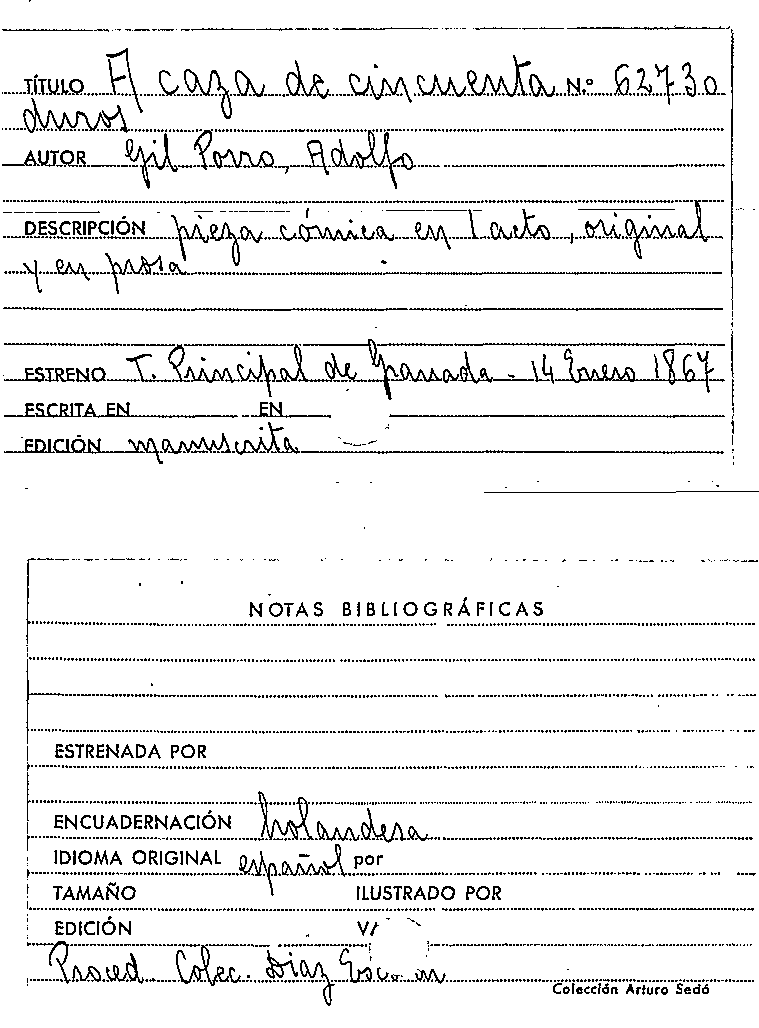 TÍTULO A caza de cincuenta N.º 62730
duros
AUTOR Gil Porro, Adolfo
DESCRIPCIÓN pieza cómica en 1 acto, original
y en prosa
ESTRENO T. Principal de Granada - 14 Enero 1867
ESCRITA EN EN
EDICIÓN manuscrita
NOTAS BIBLIOGRÁFICAS
ESTRENADA POR
ENCUADERNACIÓN holandesa
IDIOMA ORIGINAL español por
TAMAÑO ILUSTRADO POR
EDICIÓN
Proced. Colec. Díaz
Colección Arturo Sedó